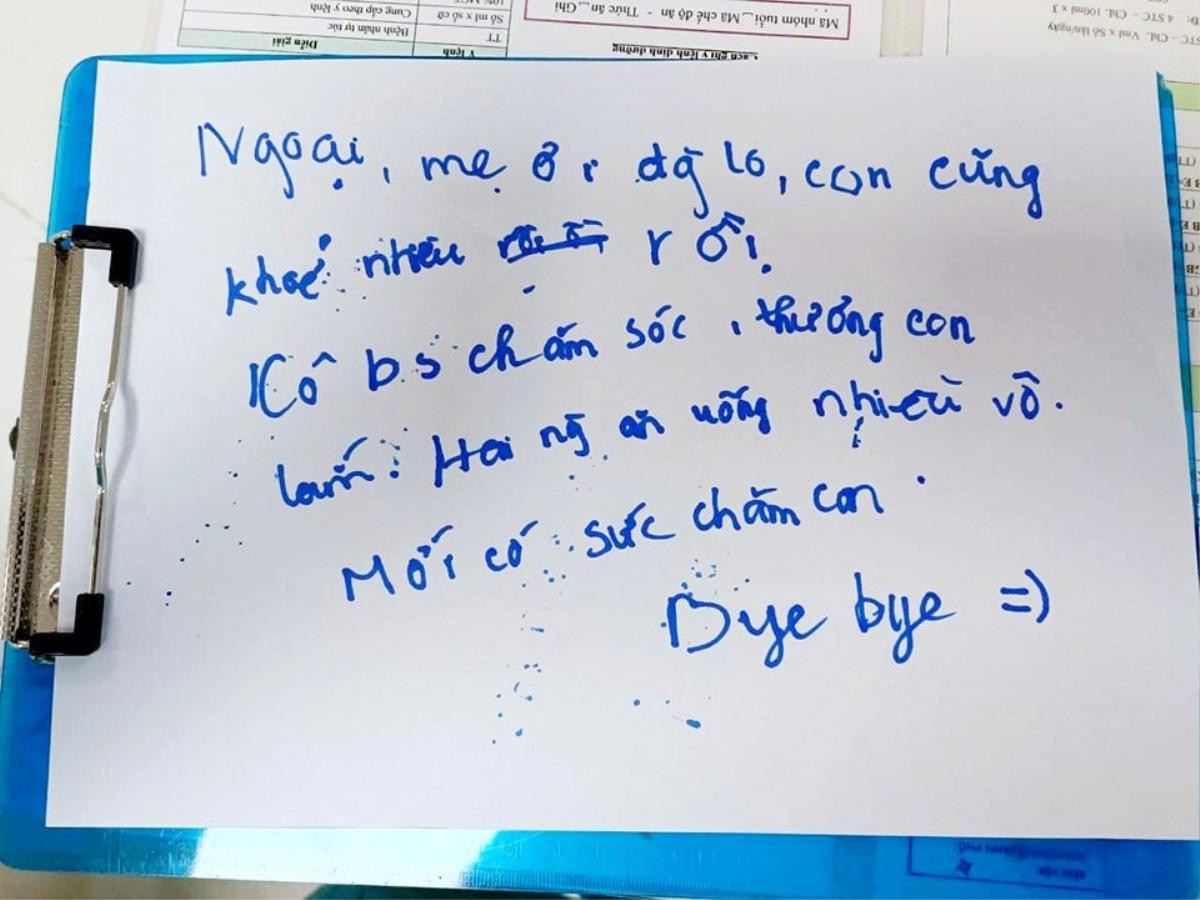 Ngoại, mẹ ơi đừg lo, con cũng
khoẻ nhiều rồi.
Cô bs chăm sóc, thương con
lắm. Hai ng ăn uống nhiều vô.
Mới có sức chăm con.
Bye bye =)
Mã nhóm tuổi_ Mã chế độ ăn - Thức ăn_ Ghi
Cách ghi y lệnh dinh dưỡng
Y lệnh
Diễn giải
TT
Bệnh nhân tự túc
Số ml x số cữ
Cung cấp theo y lệnh
STC - ChL Vml x Số lần/ngày
4 STC - ChL 100ml x 3